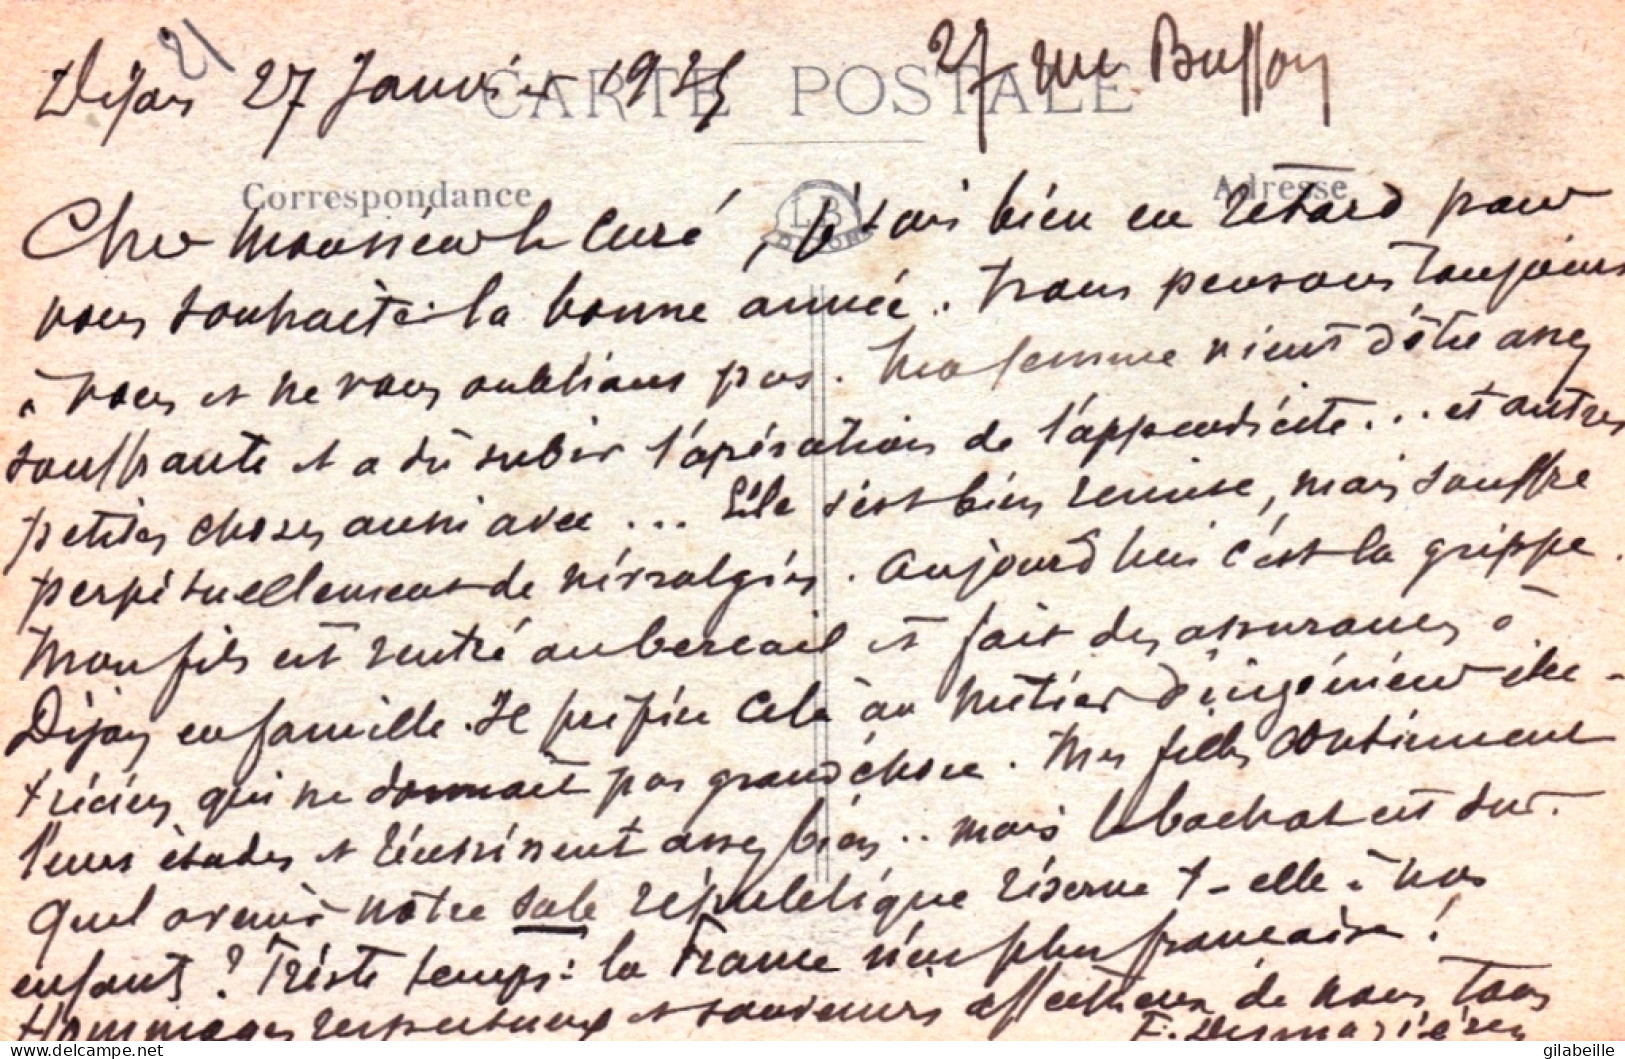 21
Dijon 27 Janvier 27 rue Buffon
CARTE POSTALE
Correspondance Adresse
Cher Monsieur le Curé, je suis bien en retard pour
vous souhaiter la bonne année. Nous pensons toujours
à vous et ne vous oublions pas. Ma femme vient d'être assez
souffrante et a dû subir l'opération de l'appendicite... et autres
petites choses aussi avec... Elle s'est bien remise, mais souffre
perpétuellement de névralgies. Aujourd'hui c'est la grippe.
Mon fils est rentré au bercail et fait des assurances à
Dijon en famille. Il préfère cela au métier d'ingénieur élec-
tricien qui ne donnait pas grand chose. Mes filles continuent
leurs études et réussissent assez bien.. mais le bachot est dur.
Quel avenir notre sale république réserve t-elle à nos
enfants ? Triste temps : la France n'est plus française !
Hommages respectueux et souvenirs affectueux de nous tous
F.
delcampe.net gilabeille